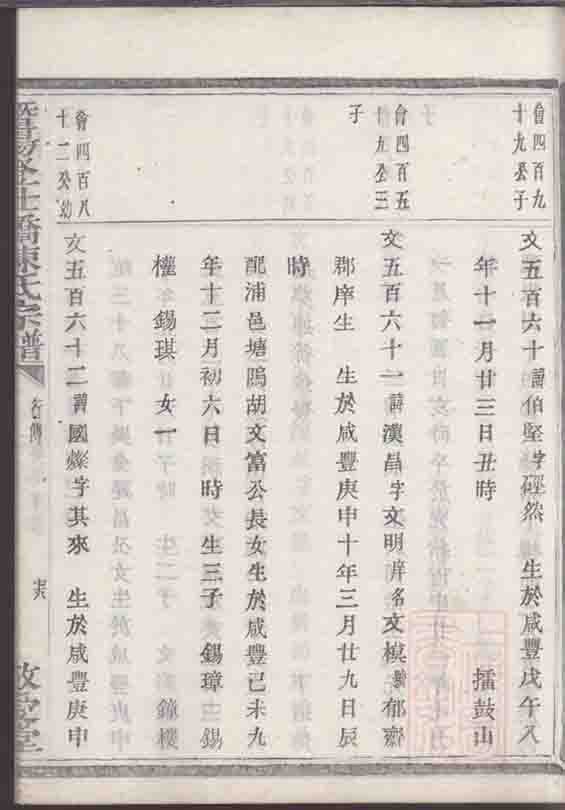 會四百九
十九公子
文五百六十諱伯堅字硜然 生於咸豐戊午八
年十一月廿三日丑時 擂鼓山
會四百五
十九公三
子
文五百六十一諱漢昌字文明庠名文模號郁齋
郡庠生 生於咸豐庚申十年三月廿九日辰
時
配浦邑塘鴎胡文富公長女生於咸豐己未九
年十二月初六日 時 生三子 錫璋 錫
權 錫琪 女一 鐘樓
會四百八
十二公幼
文五百六十二諱國燦字其來 生於咸豐庚申
橋陳氏宗譜
行傳
敬愛堂